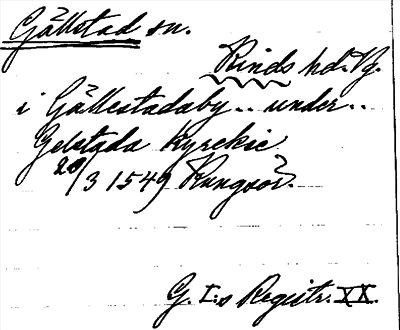 Gällstad sn.
Kinds hd. Vg.
i Gällestadaby .. under ..
Gelstada Kyrckie
20/3 1549 Kungsör.
G. I:s Registr. XX.